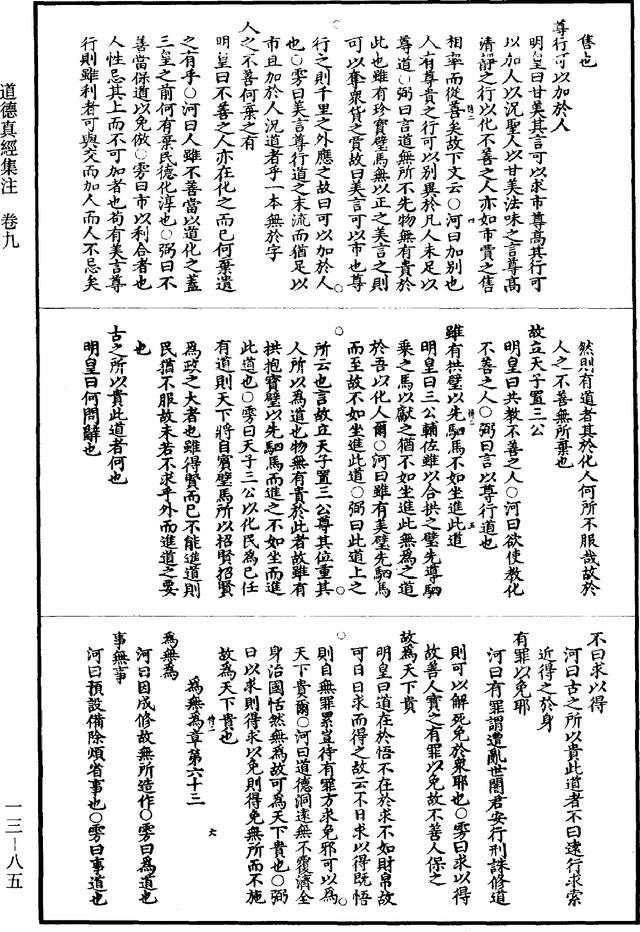 售也
尊行可以加於人
明皇曰甘美其言可以求市尊高其行可
以加人以況聖人以甘美法味之言尊高
清靜之行以化不善之人亦如市賈之售
相率而從善矣故下文云○河曰加別也
人有尊貴之行可以別異於凡人未足以
尊道○弼曰言道無所不先物無有貴於
此也雖有珍寶璧馬無以正之美言之則
可以奪衆貨之賈故曰美言可以市也尊
行之則千里之外應之故曰可以加於人
也○雱曰美言尊行道之末流而猶足以
市且加於人況道者乎一本無於字
人之不善何棄之有
明皇曰不善之人亦在化之而已何棄遺
之有乎○河曰人雖不善當以道化之蓋
三皇之前何有棄民德化淳也○弼曰不
善當保道以免倣○雱曰市以利合者也
人性忌其上而不可加者也苟有美言尊
行則雖利者可與交而加人而人不忌矣
道德真經集注　卷九
然則有道者其於化人何所不服哉故於
人之不善無所棄也
故立天子置三公
明皇曰共教不善之人○河曰欲使教化
不善之人○弼曰言以尊行道也
雖有拱璧以先駟馬不如坐進此道
明皇曰三公輔佐雖以合拱之璧先導駟
乘之馬以獻之猶不如坐進此無為之道
於吾以化人爾○河曰雖有美璧先駟馬
而至故不如坐進此道○弼曰此道上之
所云也言故立天子置三公尊其位重其
人所以為道也物無有貴於此者故雖有
拱抱寶璧以先駟馬而進之不如坐而進
此道也○雱曰天子三公以化民為已任
有道則天下將自賓璧馬所以招賢招賢
為政之大者也雖得賢而已不能進道則
民猶不服故未若不求乎外而進道之要
也
古之所以貴此道者何也
明皇曰何問辭也
不曰求以得
河曰古之所以貴此道者不曰遠行求索
近得之於身
有罪以免耶
河曰有罪謂遭亂世闇君妄行刑誅修道
則可以解死免於衆耶也○雱曰求以得
故善人寶之有罪以免故不善人保之
故為天下貴
明皇曰道在於悟不在於求不如財帛故
可日日求而得之故云不日求以得既悟
則自無罪累豈待有罪方求免邪可以為
天下貴爾○河曰道德洞遠無不覆濟全
身治國恬然無為故可為天下貴也○弼
曰以求則得求以免則得免無所而不施
故為天下貴也
為無為章第六十三
為無為
河曰因成修故無所造作○雱曰為道也
事無事
河曰預設備除煩省事也○雱曰事道也
一三—八五